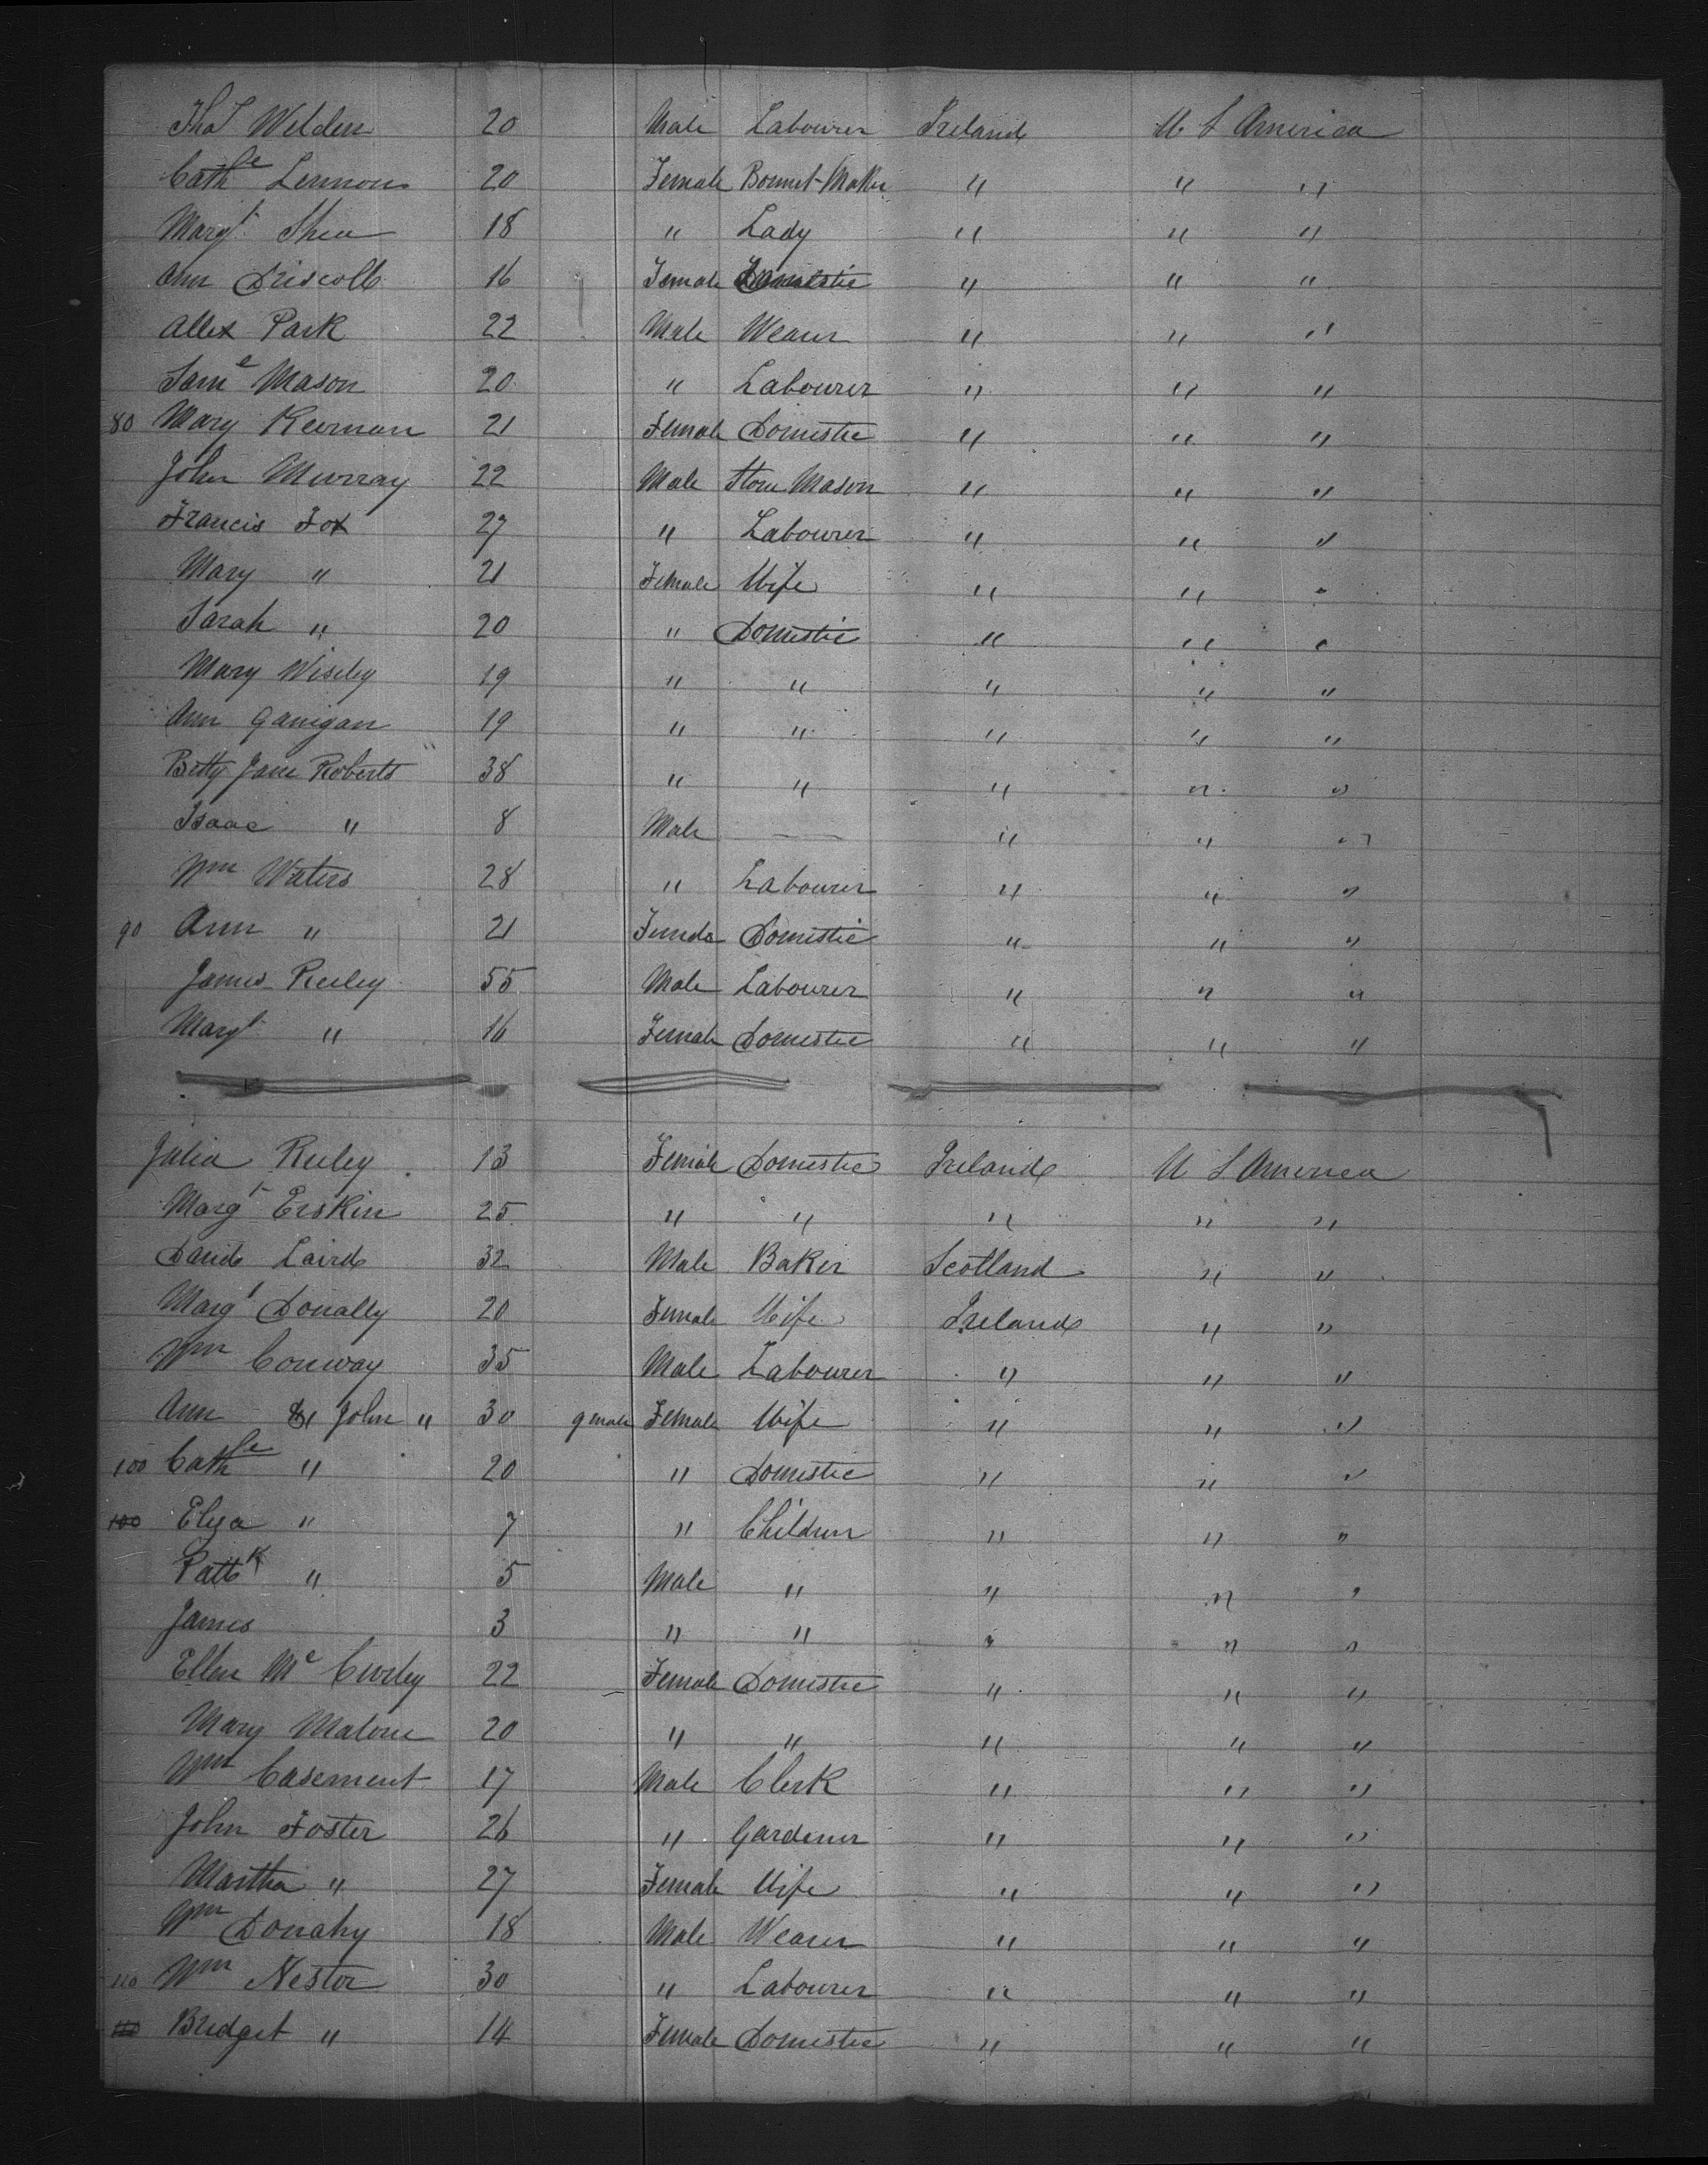 Thos Welden 20 Male Labourer Ireland U S America
Cathe Lennon 20 Female Bonnet-Maker " " "
Margt Shea 18 " Lady " " "
Ann Driscoll 16 Female Domestic " " "
Allex Park 22 Male Weaver " " "
Saml Mason 20 " Labourer " " "
80 Mary Keernan 21 Female Domestic " " "
John Murray 22 Male Stone Mason " " "
Francis Fox 27 " Labourer " " "
Mary " 21 Female Wife " " "
Sarah " 20 " Domestic " " "
Mary Wiseley 19 " " " " "
Ann Ganigan 19 " " " " "
Betty Jane Roberts 38 " " " " "
Isaac " 8 Male — — " " "
Wm Waters 28 " Labourer " " "
90 Ann " 21 Female Domestic " " "
James Reeley 55 Male Labourer " " "
Margt " 16 Female Domestic " " "
Julia Reeley 13 Female Domestic Ireland U S America
Margt Erskin 25 " " " " "
David Laird 32 Male Baker Scotland " "
Margt Donally 20 Female Wife Ireland " "
Wm Conway 35 Male Labourer " " "
Ann & John " 30 9 male Female Wife " " "
100 Cathe " 20 " Domestic " " "
100 Eliza " 7 " Children " " "
Pattk " 5 Male " " " "
James 3 " " " " "
Ellen Mc Curley 22 Female Domestic " " "
Mary Malone 20 " " " " "
Wm Casement 17 Male Clerk " " "
John Foster 26 " Gardener " " "
Martha " 27 Female Wife " " "
Wm Donahy 18 Male Weaver " " "
110 Wm Nestor 30 " Labourer " " "
110 Bridget " 14 Female Domestic " " "